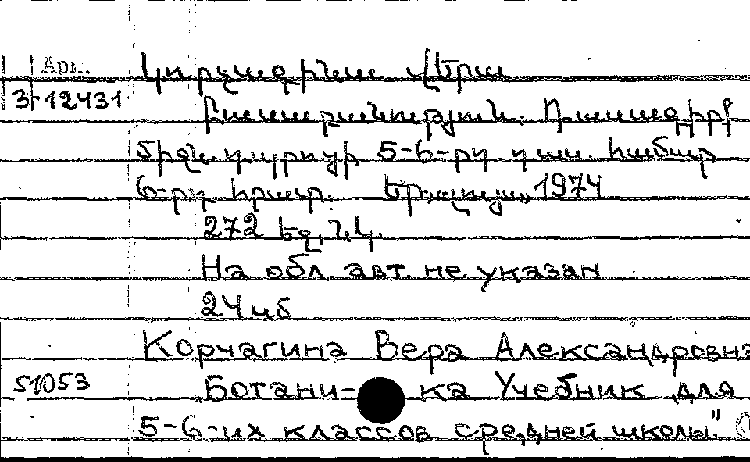 Арм.
Կորչագինա Վերա
3-12431
Բուսաբանություն. Դասագիրք
միջն. դպրոցի 5-6-րդ դաս. համար
6-րդ հրատ. Երևան, 1974
272 էջ, ն.կ.
На обл. авт. не указан
24 из
Корчагина Вера Александровна
51053
Ботани- ка Учебник для
5-6-их классов средней школы"